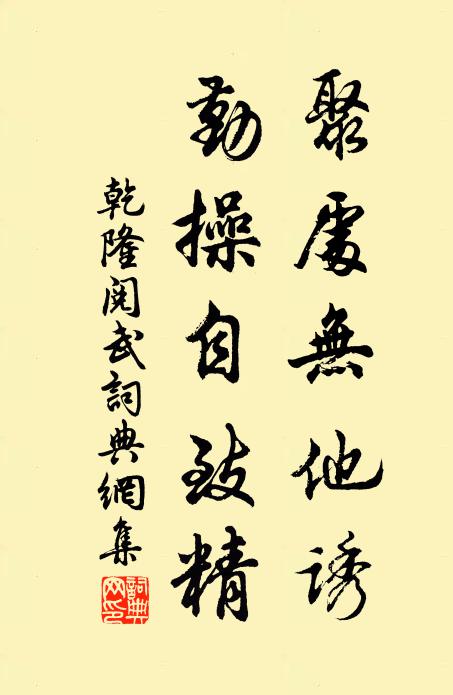 聚處無他誘
勤操自致精
乾隆閱武詞典網集
詞典网印